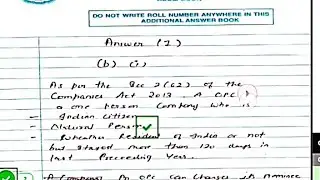 DO NOT WRITE ROLL NUMBER ANYWHERE IN THIS
ADDITIONAL ANSWER BOOK
Answer (1)
(b) (i)
As per the Sec 2(62) of the
Companies Act 2013 A OPC
a one person Company who is
- Indian Citizen
- Natural Person
- Whether Resident of India or not
but stayed more than 120 days in
last Preceeding Year.
A Company An OPC can Changes its Nominee